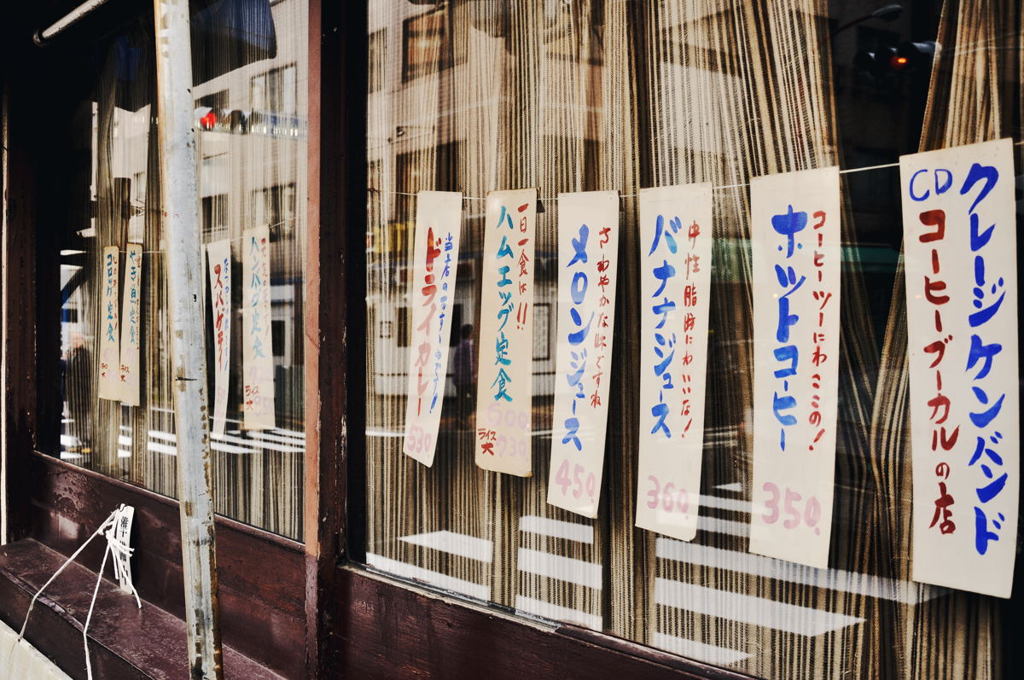 クレージケンバンド
CD コーヒーブーカルの店
コーヒーツーにわ ここの!
ホットコーヒー
350.
中性脂肪にわ いいな!
バナナジュース
360.
さわやかな味ですね
メロンジュース
450.
一日一食は!!
ハムエッグ定食
ライス 大
当店の
ドライカレー
スパゲティ
ハンバグ定食
ライス 大
やき魚定食
コロッケ定食